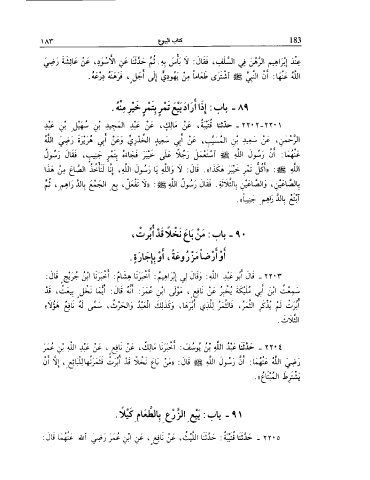 ١٨٣ كتاب البيوع 183
عِنْدَ إِبْرَاهِيمَ الرَّهْنَ فِي السَّلَفِ، فَقَالَ: لَا بَأْسَ بِهِ. ثُمَّ حَدَّثَنَا عَنِ الْأَسْوَدِ، عَنْ عَائِشَةَ رَضِيَ
اللَّهُ عَنْهَا: أَنَّ النَّبِيَّ ﷺ اشْتَرَى طَعَاماً مِنْ يَهُودِيٍّ إِلَى أَجَلٍ، فَرَهَنَهُ دِرْعَهُ.
٨٩ - باب: إِذَا أَرَادَ بَيْعَ تَمْرٍ بِتَمْرٍ خَيْرٍ مِنْهُ.
٢٢٠١-٢٢٠٢ - حدثنا قُتَيْبَةُ، عَنْ مَالِكٍ، عَنْ عَبْدِ الْمَجِيدِ بْنِ سُهَيْلِ بْنِ عَبْدِ
الرَّحْمٰنِ، عَنْ سَعِيدِ بْنِ الْمُسَيَّبِ، عَنْ أَبِي سَعِيدٍ الْخُدْرِيِّ وَعَنْ أَبِي هُرَيْرَةَ رَضِيَ اللَّهُ
عَنْهُمَا: أَنَّ رَسُولَ اللَّهِ ﷺ اسْتَعْمَلَ رَجُلًا عَلَى خَيْبَرَ فَجَاءَهُ بِتَمْرٍ جَنِيبٍ، فَقَالَ رَسُولُ
اللَّهِ ﷺ: «أَكُلُّ تَمْرِ خَيْبَرَ هٰكَذَا». قَالَ: لَا وَاللَّهِ يَا رَسُولَ اللَّهِ، إِنَّا لَنَأْخُذُ الصَّاعَ مِنْ هٰذَا
بِالصَّاعَيْنِ، وَالصَّاعَيْنِ بِالثَّلَاثَةِ. فَقَالَ رَسُولُ اللَّهِ ﷺ: «لَا تَفْعَلْ، بِعِ الْجَمْعَ بِالدَّرَاهِمِ، ثُمَّ
ابْتَعْ بِالدَّرَاهِمِ جَنِيباً».
٩٠ - باب: مَنْ بَاعَ نَخْلًا قَدْ أُبِّرَتْ،
أَوْ أَرْضاً مَزْرُوعَةً، أَوْ بِإِجَارَةٍ.
٢٢٠٣ - قَالَ أَبُو عَبْدِ اللَّهِ: وَقَالَ لِي إِبْرَاهِيمُ: أَخْبَرَنَا هِشَامٌ: أَخْبَرَنَا ابْنُ جُرَيْجٍ قَالَ:
سَمِعْتُ ابْنَ أَبِي مُلَيْكَةَ يُخْبِرُ عَنْ نَافِعٍ، مَوْلَى ابْنِ عُمَرَ: أَنَّهُ قَالَ: أَيُّمَا نَخْلٍ بِيعَتْ، قَدْ
أُبِّرَتْ لَمْ يُذْكَرِ الثَّمَرُ، فَالثَّمَرُ لِلَّذِي أَبَّرَهَا، وَكَذٰلِكَ الْعَبْدُ وَالْحَرْثُ، سَمَّى لَهُ نَافِعٌ هٰؤُلَاءِ
الثَّلَاثَ.
٢٢٠٤ - حَدَّثَنَا عَبْدُ اللَّهِ بْنُ يُوسُفَ: أَخْبَرَنَا مَالِكٌ، عَنْ نَافِعٍ، عَنْ عَبْدِ اللَّهِ بْنِ عُمَرَ
رَضِيَ اللَّهُ عَنْهُمَا: أَنَّ رَسُولَ اللَّهِ ﷺ قَالَ: «مَنْ بَاعَ نَخْلًا قَدْ أُبِّرَتْ فَثَمَرَتُهَا لِلْبَائِعِ، إِلَّا أَنْ
يَشْتَرِطَ الْمُبْتَاعُ».
٩١ - باب: بَيْعِ الزَّرْعِ بِالطَّعَامِ كَيْلًا.
٢٢٠٥ - حَدَّثَنَا قُتَيْبَةُ: حَدَّثَنَا اللَّيْثُ، عَنْ نَافِعٍ، عَنِ ابْنِ عُمَرَ رَضِيَ الله عَنْهُمَا قَالَ: